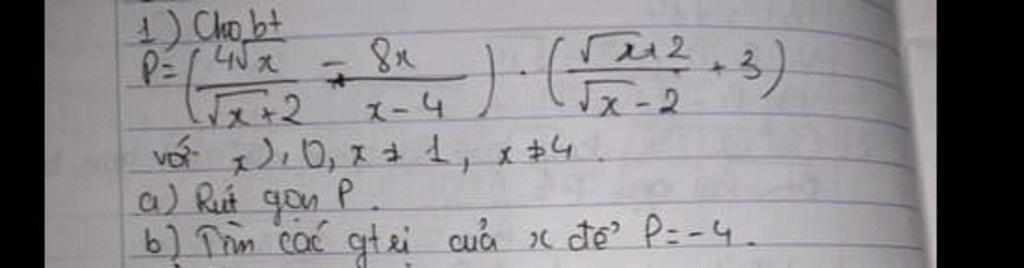 1) Cho bt
P = (4√x / (√x + 2) - 8x / (x - 4)) . ((√x + 2) / (√x - 2) + 3)
với x ≥ 0, x ≠ 1, x ≠ 4.
a) Rút gọn P.
b) Tìm các gtri của x để P = -4.